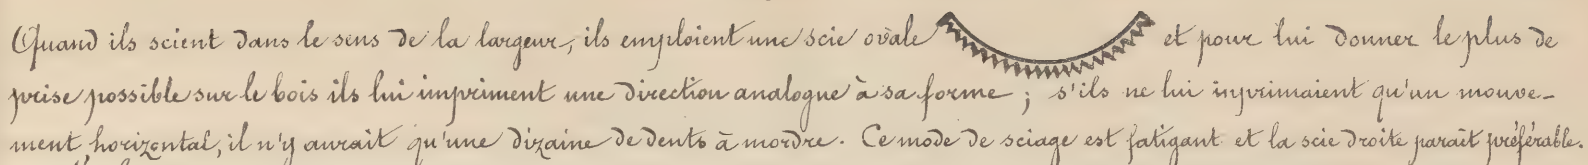 Quand ils scient dans le sens de la largeur, ils emploient une scie ovale et pour lui donner le plus de
prise possible sur le bois ils lui impriment une direction analogue à sa forme ; s'ils ne lui imprimaient qu'un mouve-
ment horizontal, il n'y aurait qu'une dizaine de dents à mordre. Ce mode de sciage est fatigant et la scie droite parait préférable.